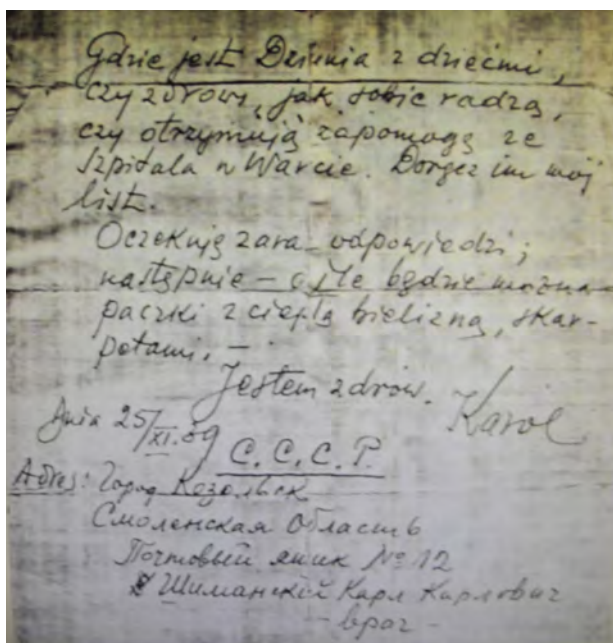 Gdzie jest Dziunia z dziećmi,
czy zdrowi, jak sobie radzą,
czy otrzymują zapomogę ze
Szpitala w Warcie. Doręcz im mój
list.
Oczekuję zara- odpowiedzi;
następnie – o ile będzie można
paczki z ciepłą bielizną, skar-
petami. –
Jestem zdrów. Karol
Dnia 25/XI.39
С.С.С.Р.
Adres: Город Козельск
Смоленская Область
Почтовый ящик № 12
Шиманскій Карл Карлович
– врач –